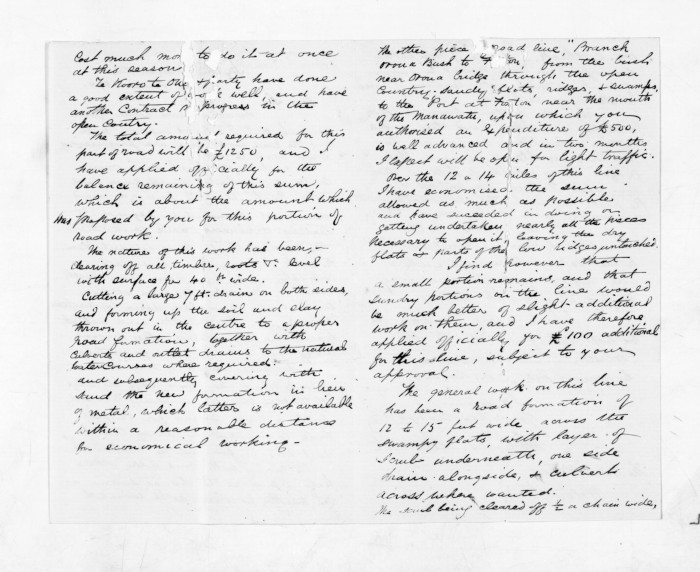 Cost much mo to do it at once
at this season
Te Kooro te One & party have done
a good extent of well, and have
another Contract in progress in the
open Coutry.
The total amount required for this
part of road will be £1250, and I
have applied officially for the
balance remaining of this sum,
which is about the amount which
was proposed by you for this portion of
road work.
The nature of this work has been,-
clearing off all timber, roots &c level
with surface for 40 ft wide.
Cutting a large 7 ft. drain on both sides,
and forming up the soil and clay
thrown out in the centre to a proper
road formation, together with
culverts and outlet drains to the natural
watercourses where required.
and subsequently covering with
sand the new formation in lieu
of metal, which latter is not available
within a reasonable distance
for economical working-
The other piece road line, "Branch
Oroua Bush to Foxton, from the bush
near Oroua Bridge through the open
Country. Sandy flats, ridges, & swamps,
to the Port at Foxton near the mouth
of the Manawatu, upon which you
authorised an Expenditure of £500,
is well advanced and in two months
I expect will be open for light traffic.
Over the 12 or 14 miles of this line
I have economised the sum
allowed as much as possible
and have succeeded in doing or
getting undertaken nearly all the pieces
necessary to open it, leaving the dry
flats & parts of the low ridges untouched.
I find however that
a small portion remains, and that
sundry portions on the line would
be much better of slight additional
work on them, and I have therefore
applied officially for £100 additional
for this line, subject to your
approval.
The general work on this line
has been a road formation of
12 to 15 feet wide across the
swampy flats, with layer of
scrub underneath, one side
drain alongside, & culverts
across where wanted.
The scrub being cleared off ½ a chain wide,